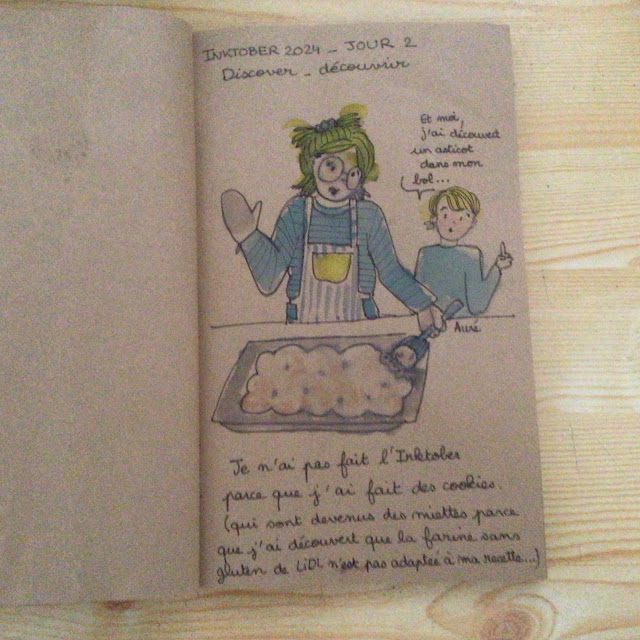 INKTOBER 2024 - JOUR 2
Discover - découvrir
Et moi,
j'ai découvert
un asticot
dans mon
bol...
Auré
Je n'ai pas fait l'Inktober
parce que j'ai fait des cookies.
(qui sont devenus des miettes parce
que j'ai découvert que la farine sans
gluten de LiDL n'est pas adaptée à ma recette...)